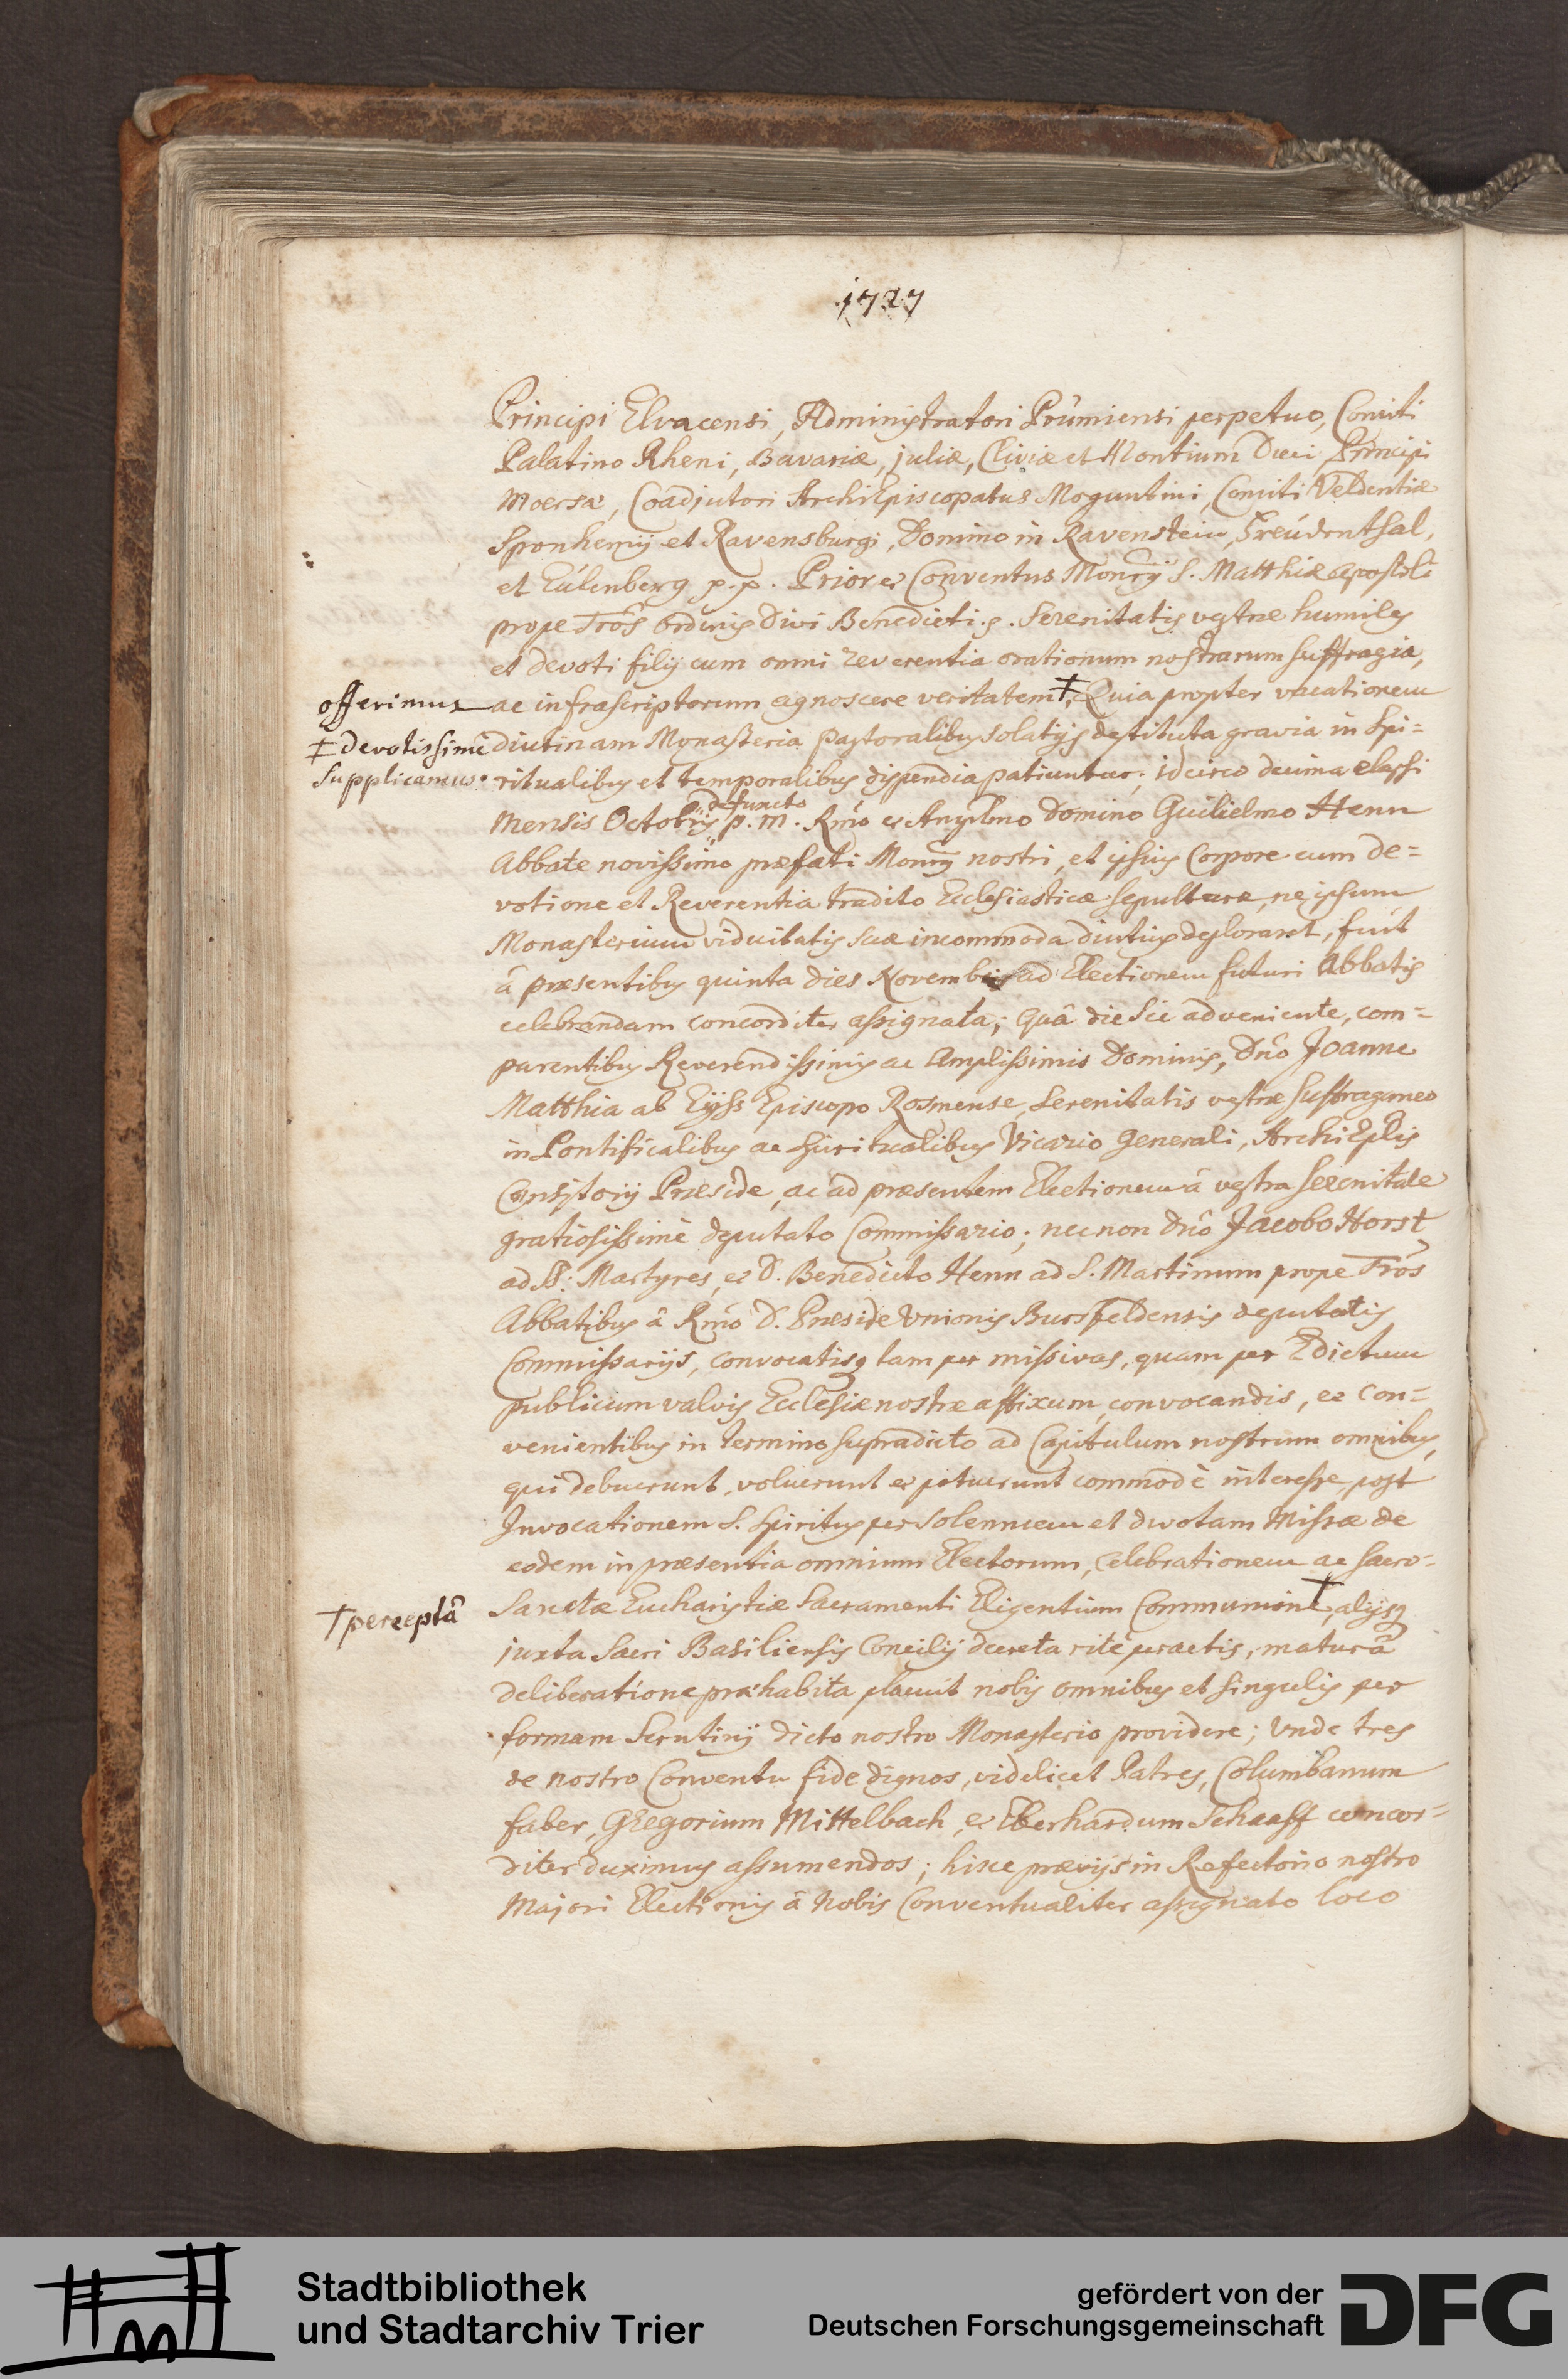 1727
Principi Elvacensi, Administratori Prûmiensi perpetuo, Comiti
Palatino Rheni, Bavariæ, juliæ, Cliviæ et Montium Duci Principi
Moersæ, Coadjutori ArchiEpiscopatus Moguntini, Comiti Veldentiæ
Sponhemij et Ravensburgi, Domino in Ravenstein, Freúdenthal,
et Eúlenberg p.p. Prior et Conventus Monrij S. Matthiæ Apostoli
prope Trôs Ordinis Divi Benedicti. Serenitatis vestræ humiles
et devoti filij cum omni reverentia orationum nostrarum suffragia,
offerimus ac infrascriptorum agnoscere veritatem †, Quia propter vacationem
† devotissime diutinam Monasteria pastoralibus solatijs destituta gravia in spi=
supplicamus. ritualibus et temporalibus dispendia patiuntur; idcirco decima elapsi
defuncto
Mensis Octobris p.m. Rmo et Amplmo Domino Guilielmo Henn
Abbate novissimo præfati Monrij nostri, et ipsius Corpore cum de=
votione et Reverentia tradito Ecclesiasticæ sepulturæ, ne ipsum
Monasterium viduitatis suæ incommoda diutius deploraret, fuit
â præsentibus quinta dies Novembris ad Electionem futuri Abbatis
celebrandam concorditer assignata; quâ die sic adveniente, com=
parentibus Reverendissimis ac Amplissimis Dominis, Dno Joanne
Matthia ab Eyss Episcopo Rosmense, Serenitatis vestræ suffraganeo
in Pontificalibus ac spiritualibus Vicario generali, ArchiEplis
Consistorij Præside, ac ad præsentem Electionem â vestra serenitate
gratiosissimè deputato Commissario; nec non Dno Jacobo Horst
ad SS: Martyres, et D. Benedicto Henn ad S. Martinum prope Trôs
Abbatibus â Rmo D. Præside Unionis Bursfeldensis deputatis
Commissarijs, convocatisq tam per missivas, quam per Edictum
publicum valvis Ecclesiæ nostræ affixum, convocandis, et con=
venientibus in termino supradicto ad Capitulum nostrum omnibus,
qui debuerunt, voluerunt et potuerunt commodè interesse, post
Invocationem S. Spiritus per solennem et devotam Missæ de
eodem in præsentia omnium Electorum, celebrationem ac sacro=
† perceptâ Sanctæ Eucharistiæ Sacramenti Eligentium Communione †, alijsq
juxta Sacri Basiliensis Concilij decreta ritè peractis, maturâ
deliberatione præhabita placuit nobis omnibus et singulis per
formam Scrutinij dicto nostro Monasterio providere; Unde tres
de nostro Conventu fide dignos, videlicet Patres, Columbanum
faber, Gregorium Mittelbach, et Eberhardum Schaaff concor=
diter duximus assumendos; hisce prævijs in Refectorio nostro
Majori Electionis â Nobis Conventualiter assignato loco
Stadtbibliothek
und Stadtarchiv Trier
gefördert von der
Deutschen Forschungsgemeinschaft
DFG